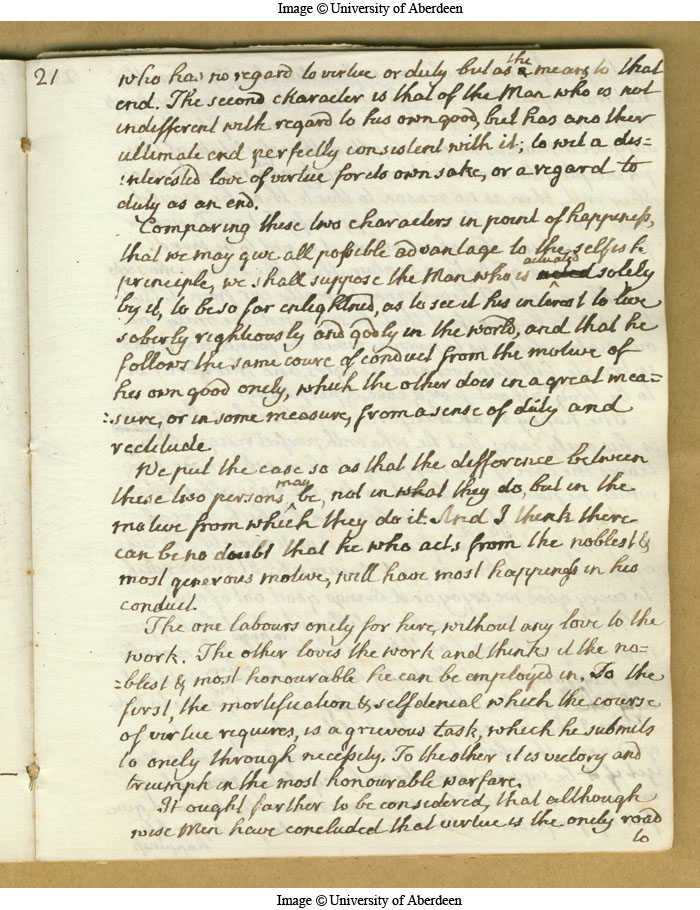 Image © University of Aberdeen
21
who has no regard to virtue or duty but as the means to that
end. The second character is that of the Man who is not
indifferent with regard to his own good, but has another
ultimate end perfectly consistent with it; to wit a dis=
:interested love of virtue for its own sake, or a regard to
duty as an end.
Comparing these two characters in point of happiness,
that we may give all possible advantage to the selfish
principle, we shall suppose the Man who is actuated solely
by it, to be so far enlightned, as to see it his interest to live
soberly righteously and godly in the world, and that he
follows the same course of conduct from the motive of
his own good onely, which the other does in a great mea=
:sure, or in some measure, from a sense of duty and
rectitude.
We put the case so as that the difference between
these two persons may be, not in what they do, but in the
motive from which they do it. And I think there
can be no doubt that he who acts from the noblest &
most generous motive, will have most happiness in his
conduct.
The one labours onely for hire, without any love to the
work. The other loves the work and thinks it the no=
=blest & most honourable he can be employed in. To the
first, the mortification & selfdenial which the course
of virtue requires, is a grievous task, which he submits
to onely through necessity. To the other it is victory and
triumph in the most honourable warfare.
It ought farther to be considered, that although
wise Men have concluded that virtue is the onely road
to
Image © University of Aberdeen